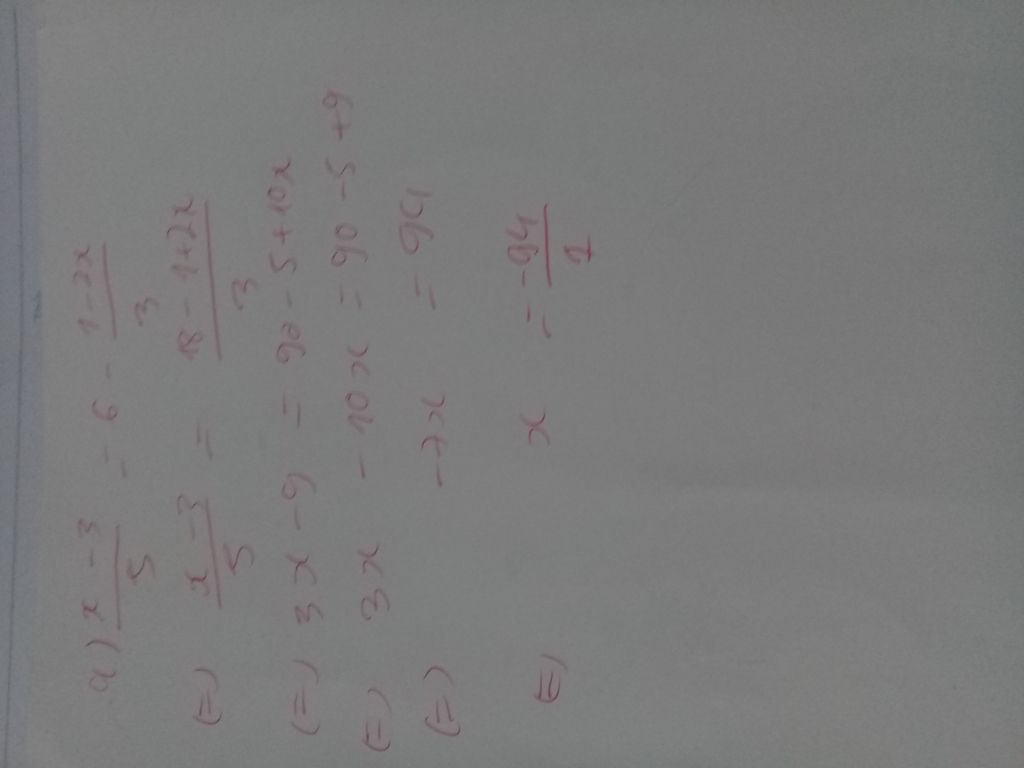 a) \frac{x-3}{5} = 6 - \frac{1-2x}{3}
(=) \frac{x-3}{5} = \frac{18-1+2x}{3}
(=) 3x - 9 = 90 - 5 + 10x
(=) 3x - 10x = 90 - 5 + 9
(=) -7x = 94
(=) x = \frac{-94}{7}